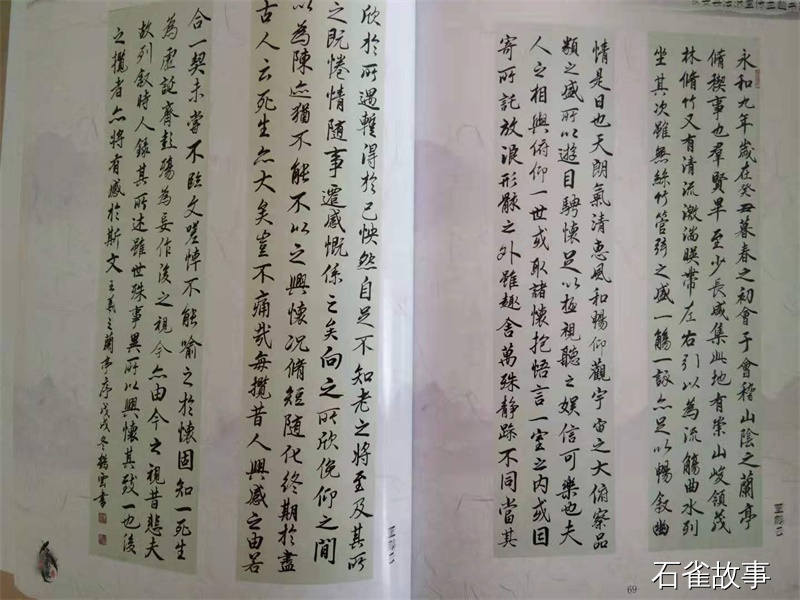 永和九年歲在癸丑暮春之初會于會稽山陰之蘭亭
脩稧事也羣賢畢至少長咸集此地有崇山峻領茂
林脩竹又有清流激湍暎帶左右引以為流觴曲水列
坐其次雖無絲竹管弦之盛一觴一詠亦足以暢敘幽
情是日也天朗氣清惠風和暢仰觀宇宙之大俯察品
類之盛所以遊目騁懷足以極視聽之娛信可樂也夫
人之相與俯仰一世或取諸懷抱悟言一室之內或因
寄所託放浪形骸之外雖趣舍萬殊靜躁不同當其
欣於所遇暫得於己怏然自足不知老之將至及其所
之既惓情隨事遷感慨係之矣向之所欣俛仰之間
以為陳迹猶不能不以之興懷況脩短隨化終期於盡
古人云死生亦大矣豈不痛哉每攬昔人興感之由若
合一契未嘗不臨文嗟悼不能喻之於懷固知一死生
為虛誕齊彭殤為妄作後之視今亦由今之視昔悲夫
故列敘時人錄其所述雖世殊事異所以興懷其致一也後
之攬者亦將有感於斯文 王羲之蘭亭序戊戌冬鶴雲書
69
石雀故事